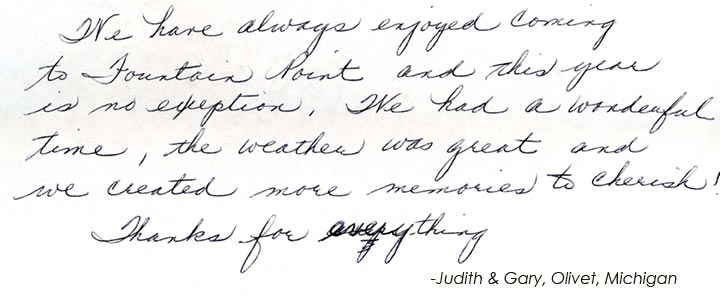 We have always enjoyed coming
to Fountain Point and this year
is no exeption. We had a wonderful
time, the weather was great and
we created more memories to cherish!
Thanks for everything
-Judith & Gary, Olivet, Michigan